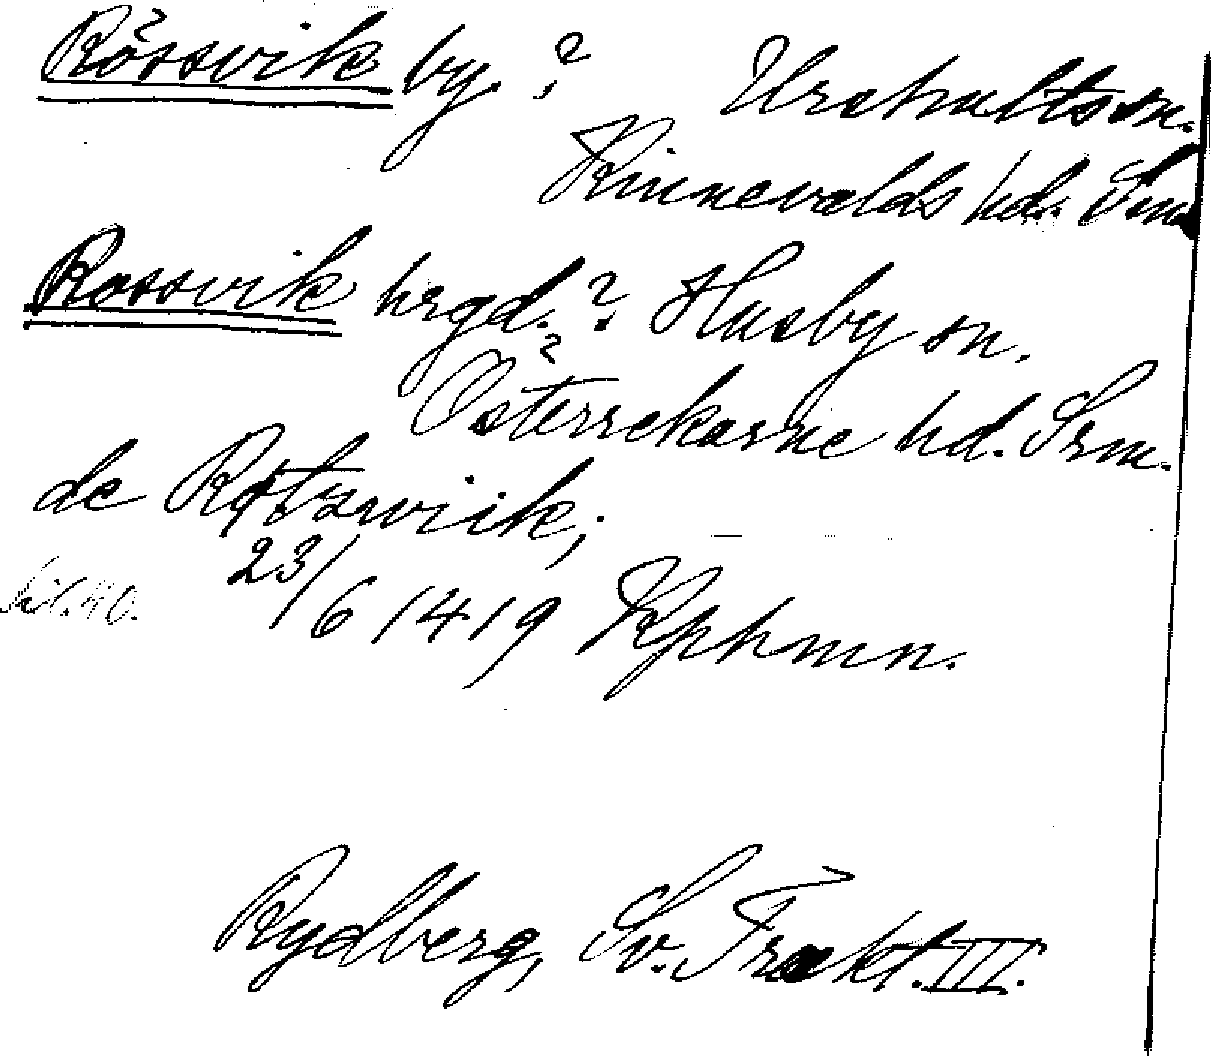 Rössvik by. ? Urshults sn.
Kinnevalds hd. Sm.
Rossvik hrgd. ? Husby sn.
Österrekarne hd. Srm.
de Rotzwiik;
23/6 1419 Kphmn.
Rydberg, Sv. Trakt. III.